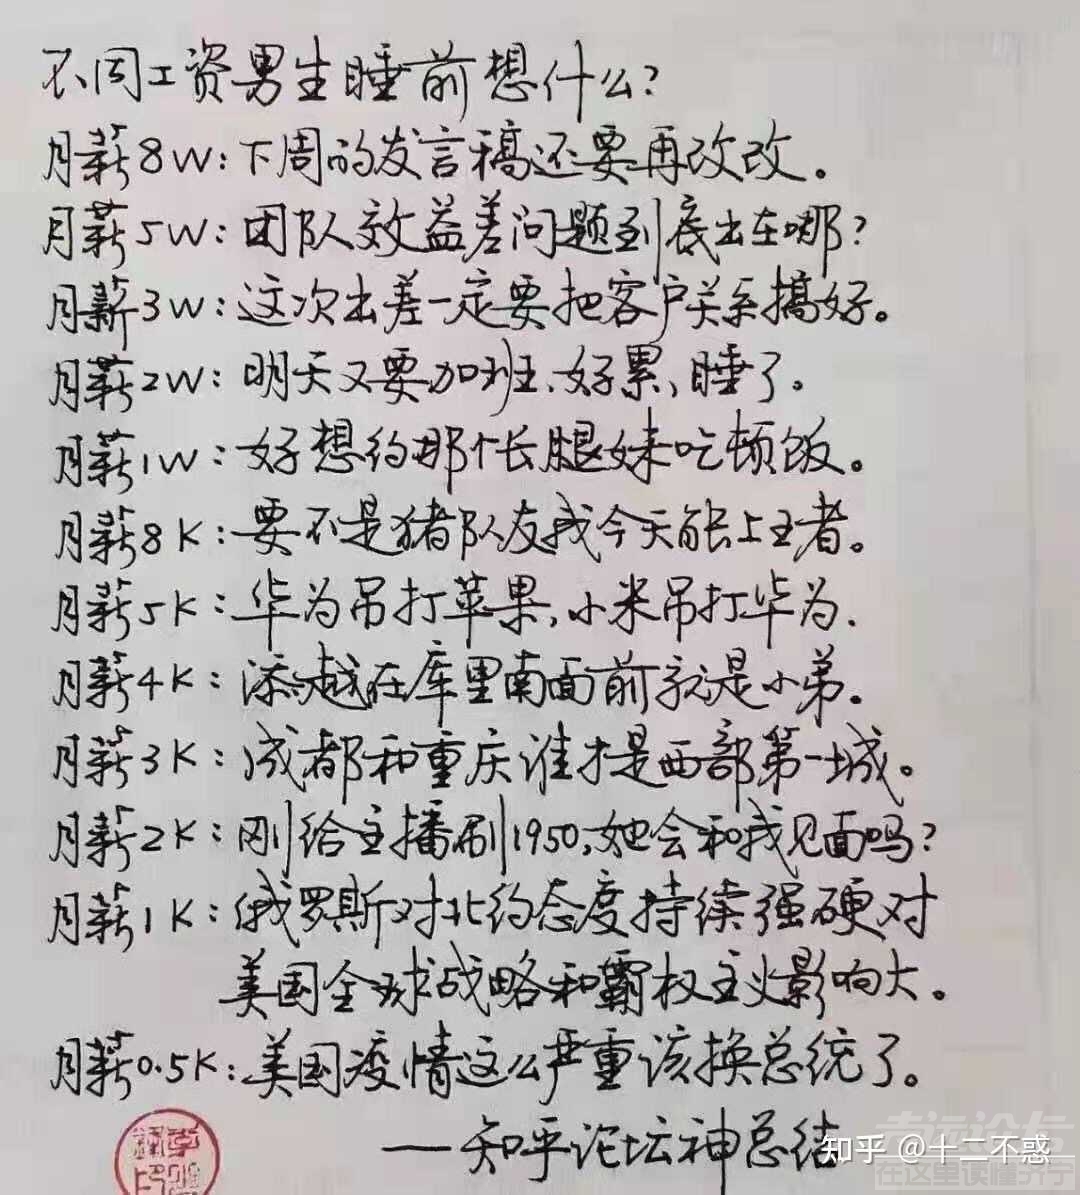 不同工资男生睡前想什么?
月薪8W:下周的发言稿还要再改改。
月薪5W:团队效益差问题到底出在哪?
月薪3W:这次出差一定要把客户关系搞好。
月薪2W:明天又要加班、好累、睡了.
月薪1W:好想约那个长腿妹吃顿饭。
月薪8K:要不是猪队友我今天能上王者。
月薪5K:华为吊打苹果,小米吊打华为.
月薪4K:添越在库里南面前就是小弟.
月薪3K:成都和重庆谁才是西部第一城。
月薪2K:刚给主播刷1950,她会和我见面吗?
月薪1K:俄罗斯对北约态度持续强硬对
美国全球战略和霸权主义影响大。
月薪0.5K:美国疫情这么严重该换总统了。
——知乎论坛神总结
知乎 @十二不惑
在这里读懂济宁